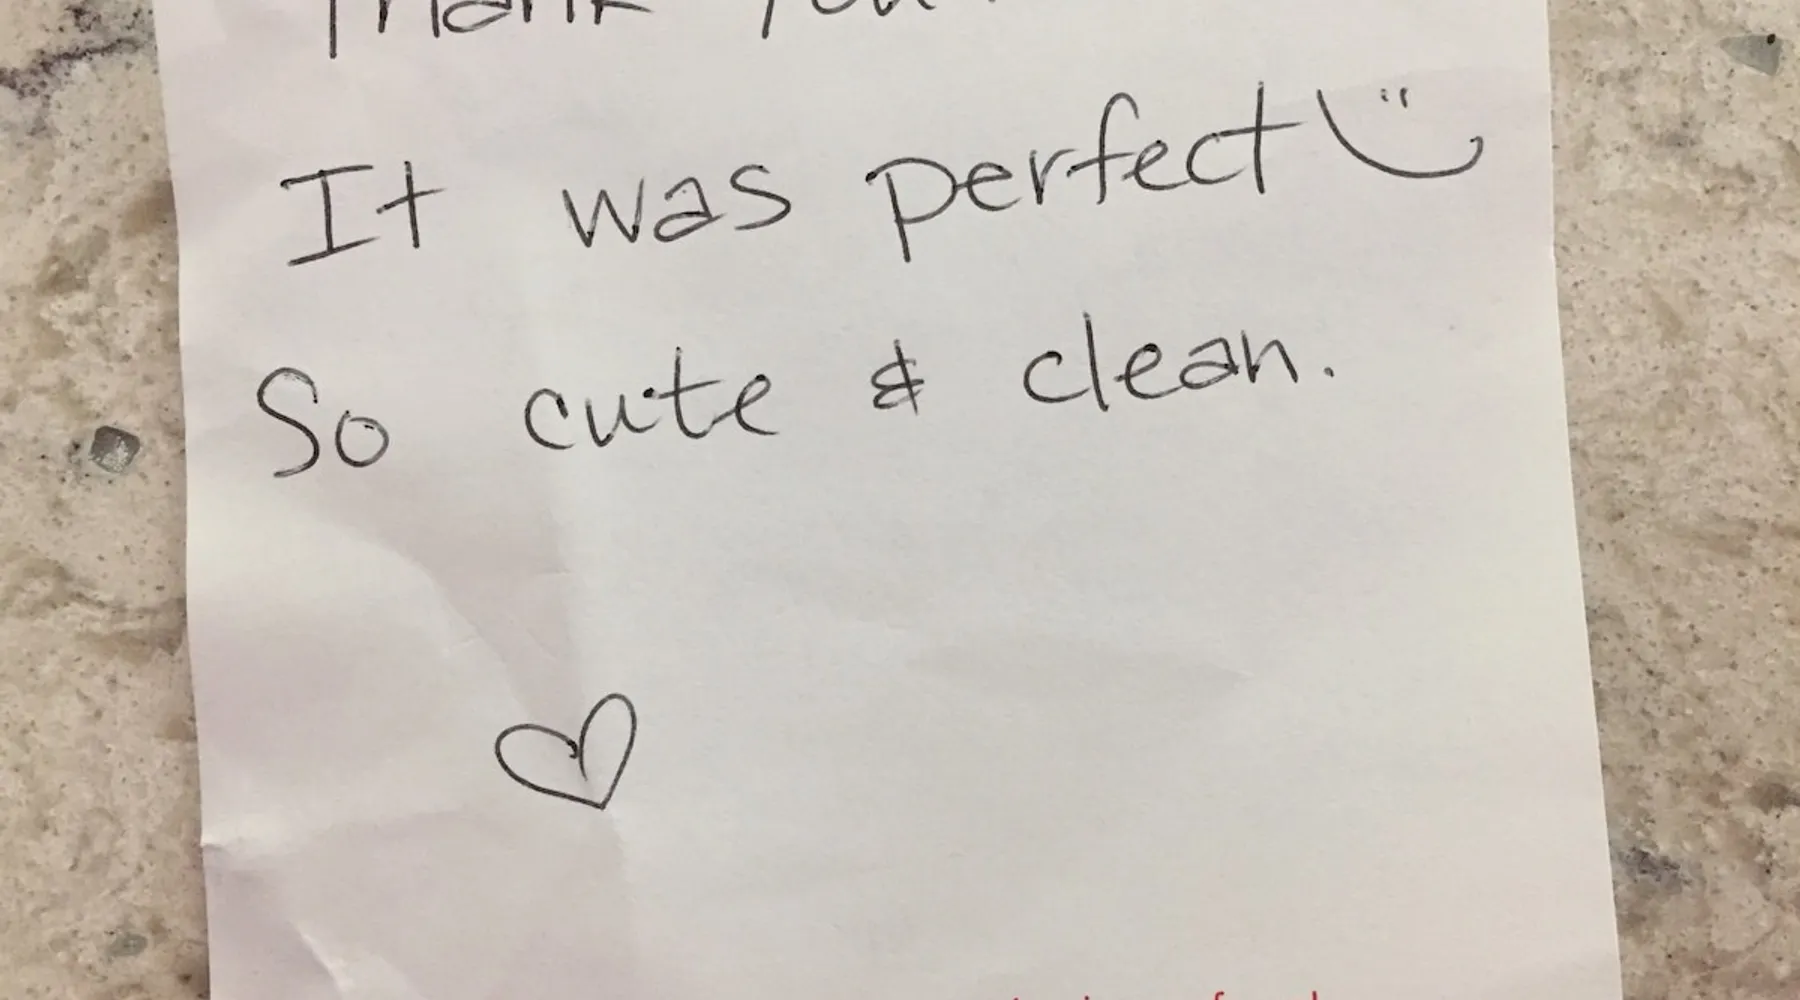 Thank You!
It was perfect
So cute & clean.